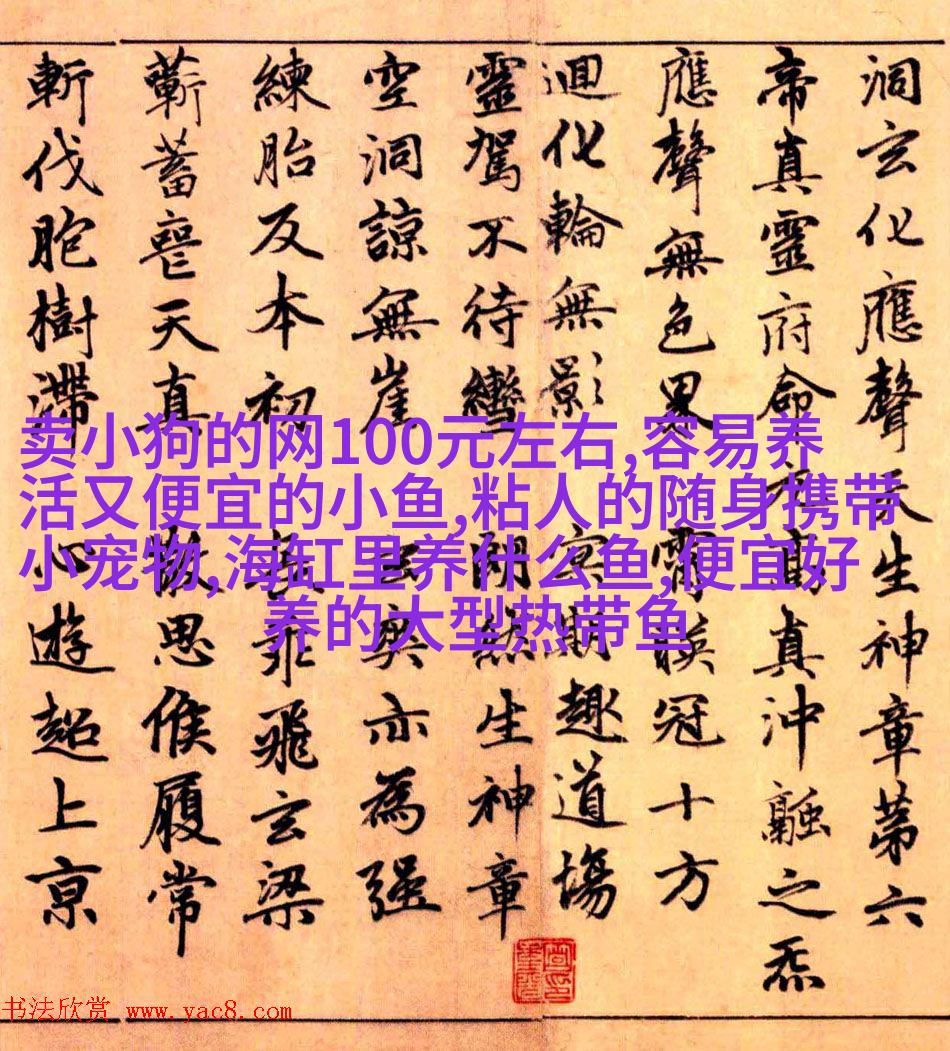 洞玄化應聲天生神章苐六
帝真靈府命元高真沖融之炁
應聲無色界霄映冠十方
迴化輪無影冥期趣道場
靈駕不待轡朗然生神章
空洞諒無崖玄爽亦為強
練胎反本初長乖飛玄梁
蘄蓄喪天真散思候履常
斬伐胞樹滯心遊超上京
卖小狗的网100元左右,容易养
活又便宜的小鱼,粘人的随身携带
小宠物,海缸里养什么鱼,便宜好
养的大型热带鱼
书法欣赏 www.yac8.com